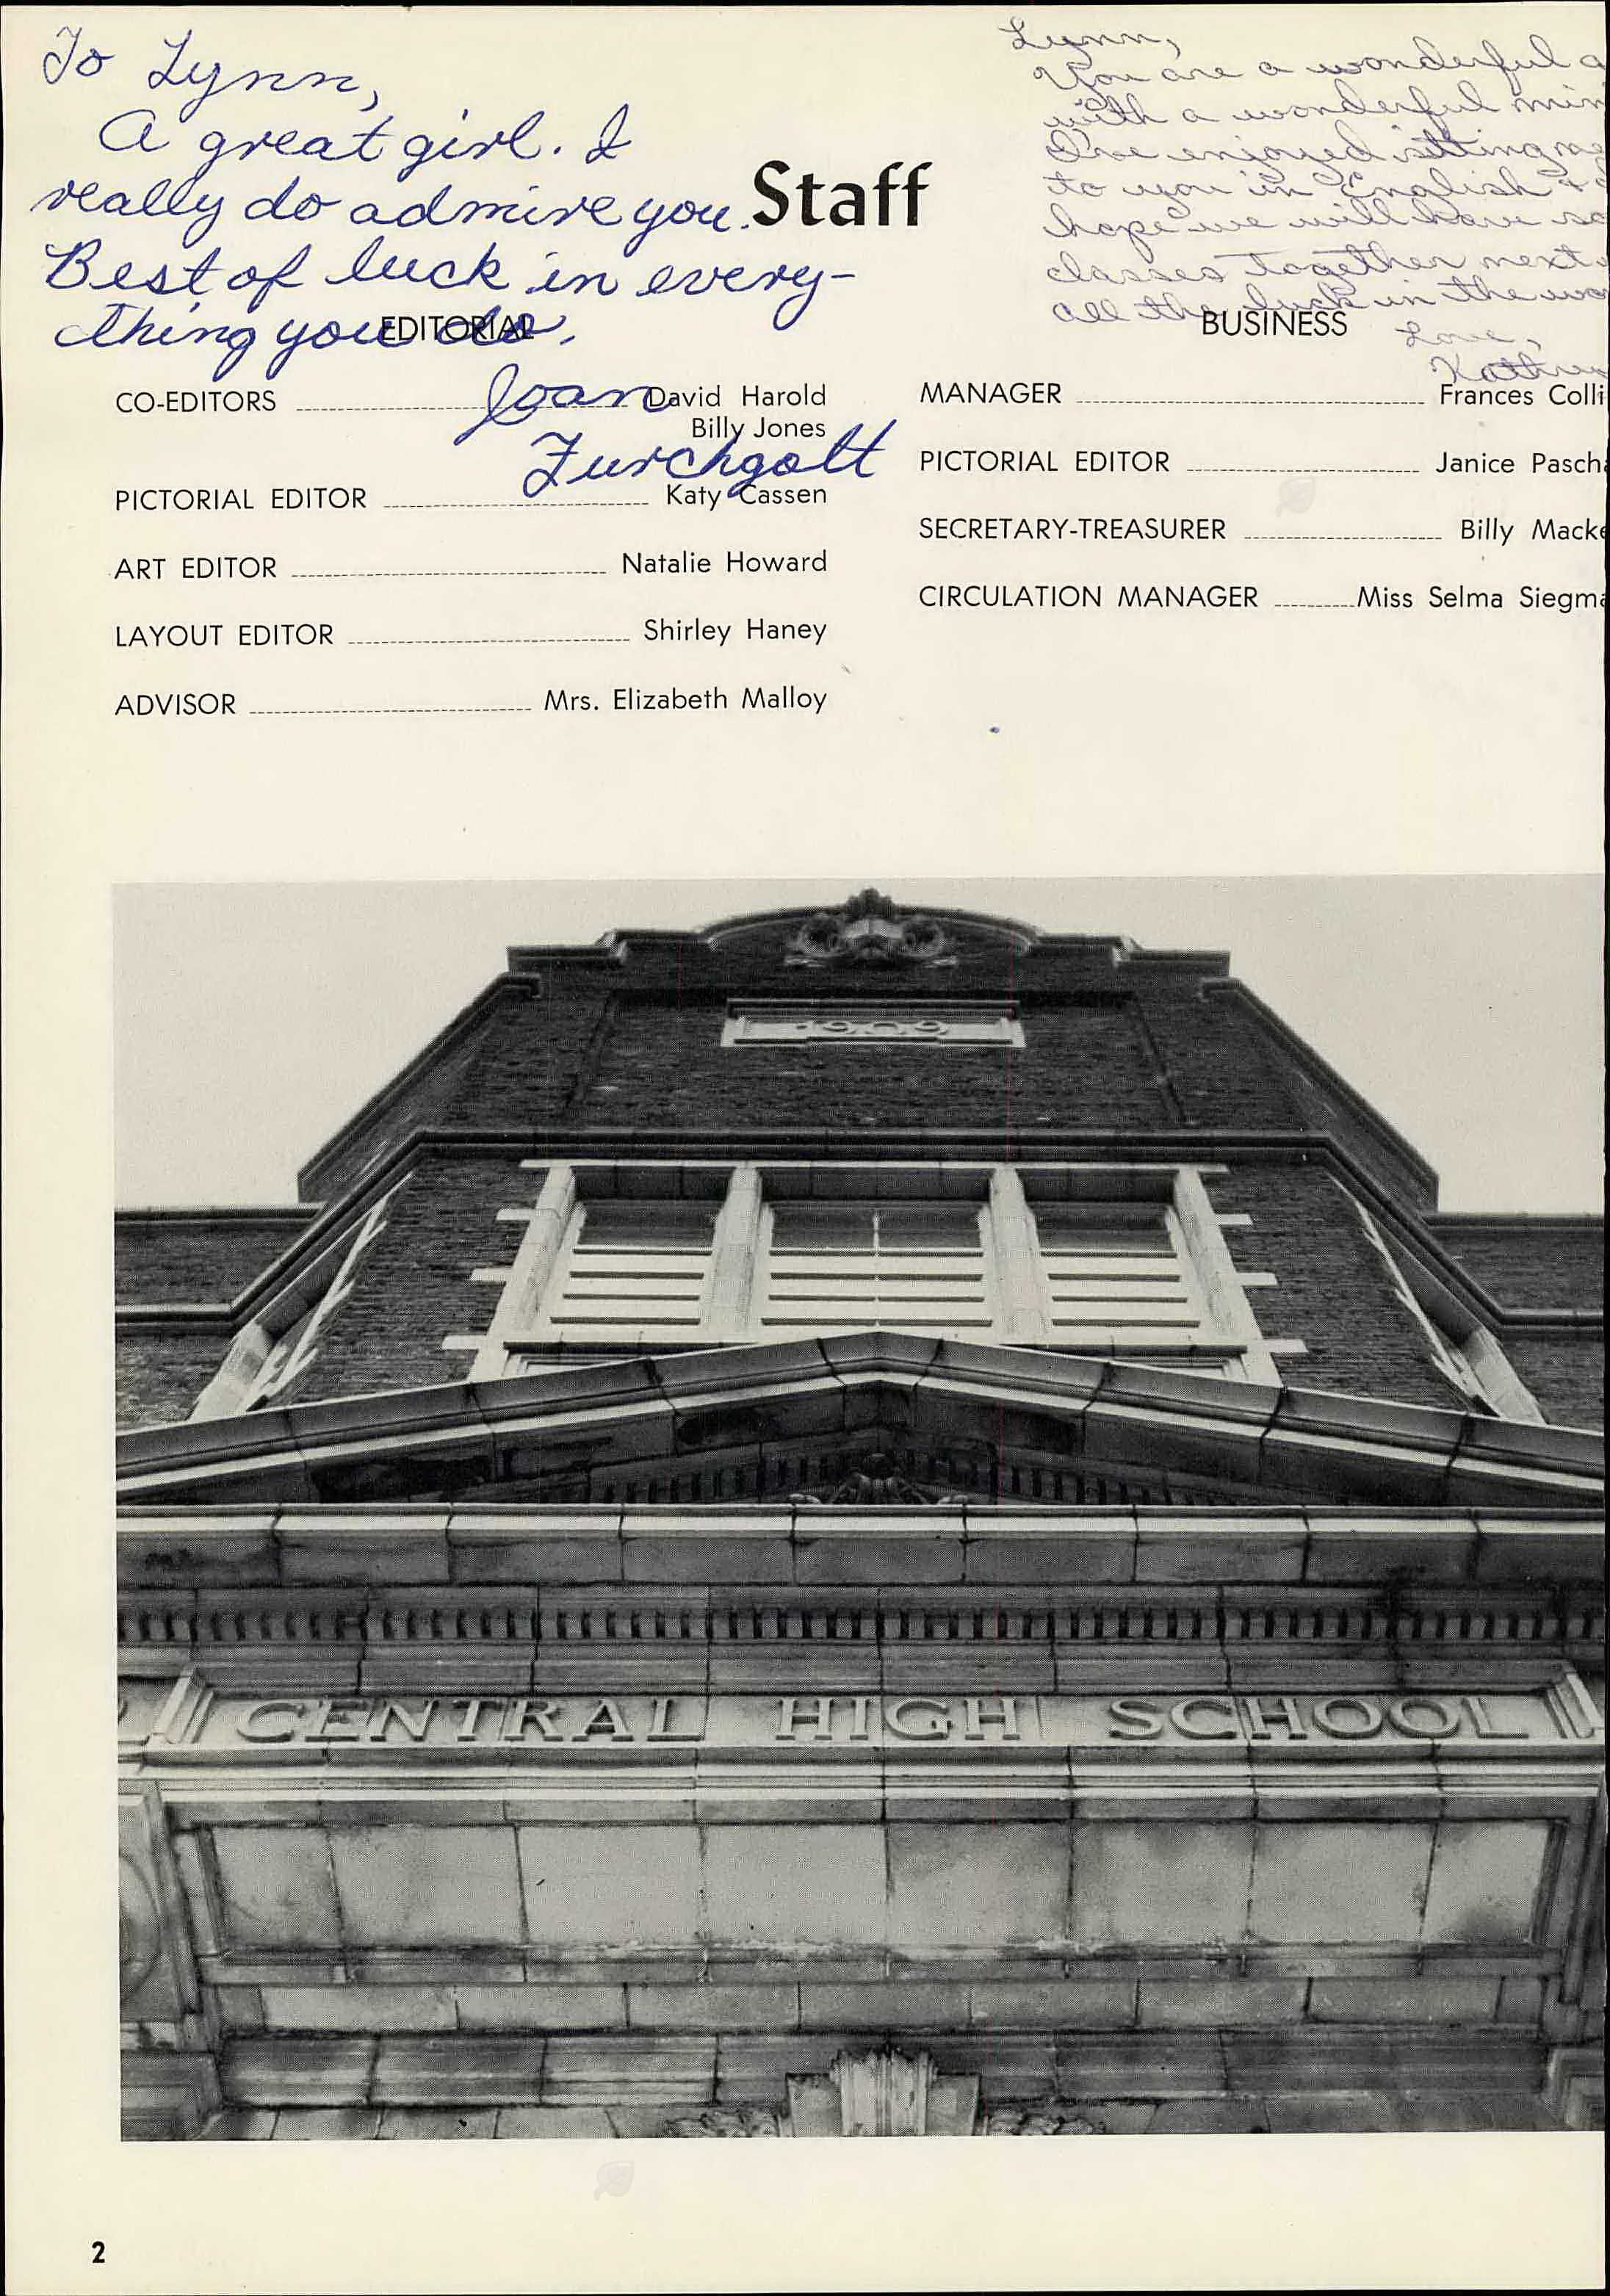 To Lynn,
A great girl. I
really do admire you.
Best of luck in every-
thing you do.
Joan
Furchgott
Lynn,
You are a wonderful
with a wonderful
I've enjoyed sitting
to you in English +
hope we will have
classes together next
all the luck in the
Love,
Staff
EDITORIAL
CO-EDITORS David Harold
Billy Jones
PICTORIAL EDITOR Katy Cassen
ART EDITOR Natalie Howard
LAYOUT EDITOR Shirley Haney
ADVISOR Mrs. Elizabeth Malloy
BUSINESS
MANAGER Frances Colli
PICTORIAL EDITOR Janice Pasch
SECRETARY-TREASURER Billy Macke
CIRCULATION MANAGER Miss Selma Siegma
1909
CENTRAL HIGH SCHOOL
2